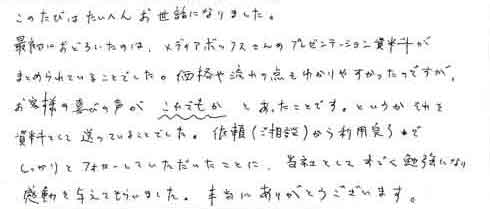 このたびはたいへんお世話になりました。
最初におどろいたのは、メディアボックスさんのプレゼンテーション資料が
まとめられていることでした。価格や流れの点もわかりやすかったのですが、
お客様の喜びの声が これでもか とあったことです。というかそれを
資料として送っていることでした。依頼(ご相談)から利用完了まで
しっかりとフォローしていただいたことに、当社としてすごく勉強になり
感動を与えてもらいました。本当にありがとうございます。